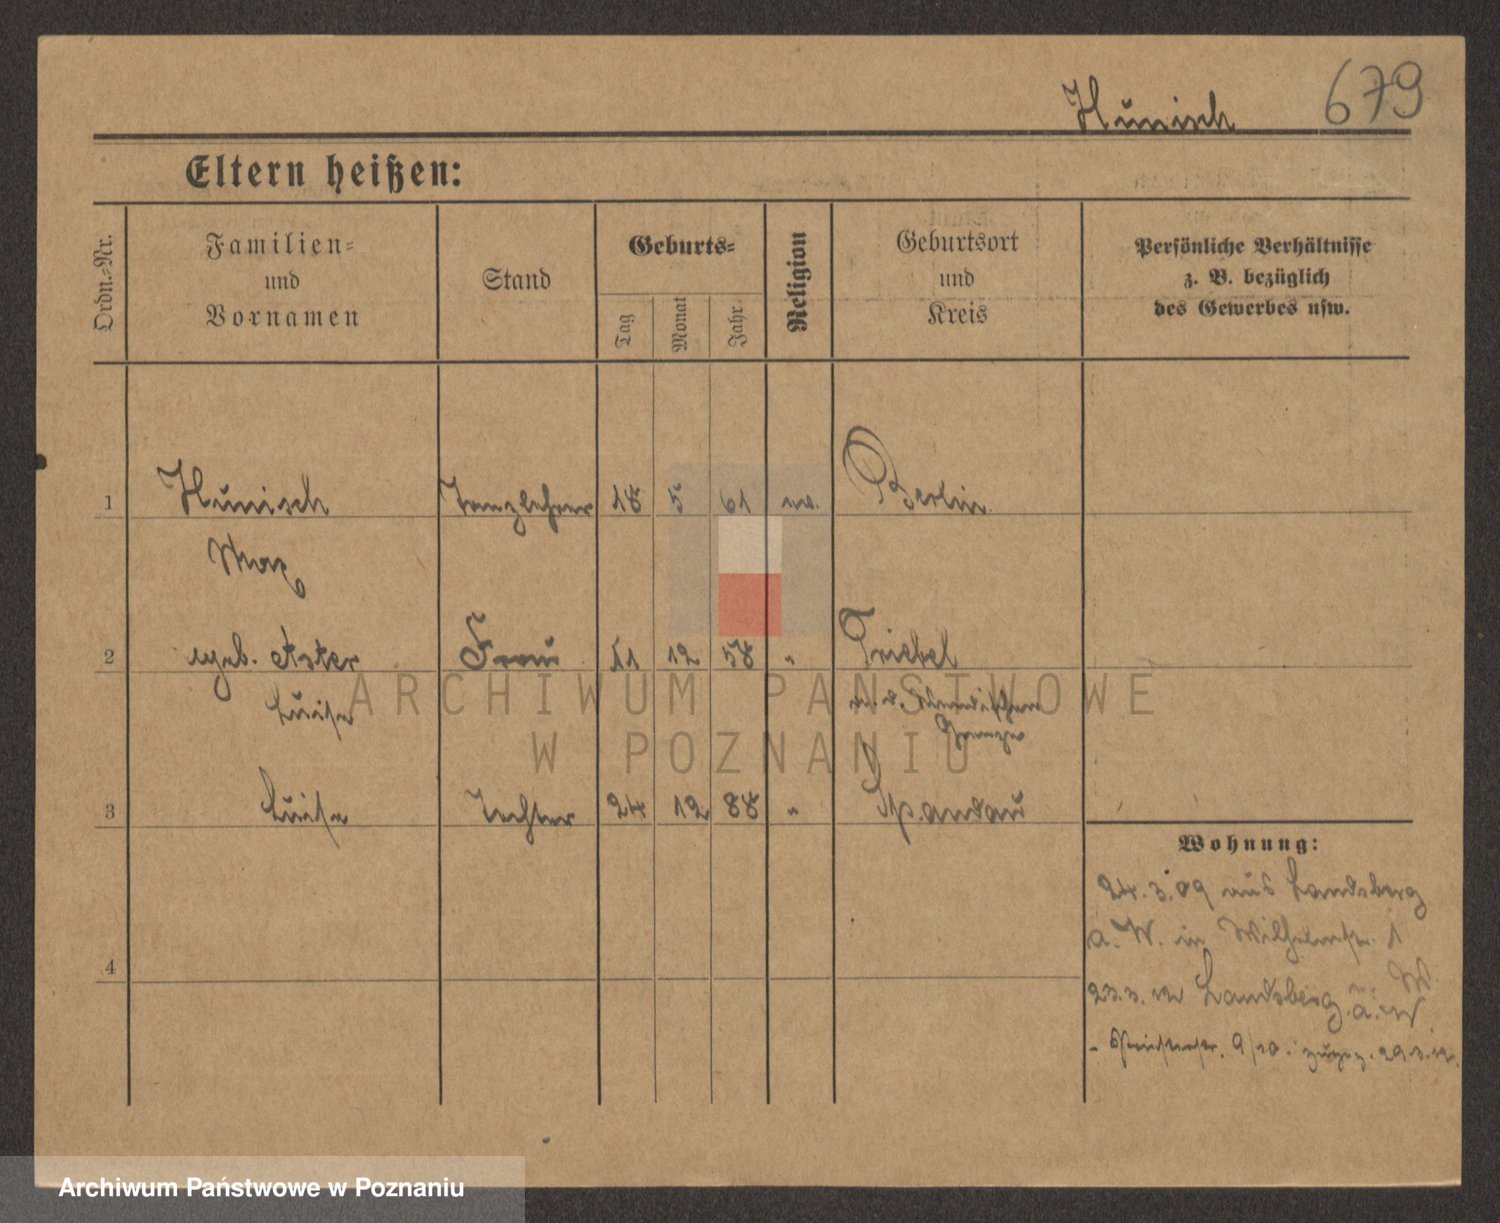 Hünisch 679
Eltern heißen:
Ordn.-Nr.
Familien-
und
Vornamen
Stand
Geburts-
Tag
Monat
Jahr
Religion
Geburtsort
und
Kreis
Persönliche Verhältnisse
z. B. bezüglich
des Gewerbes usw.
1 Hünisch Tanzlehrer 18 5 61 ev. Berlin
Max
2 geb. Frau 11 12 58 " Triebel
Luise
3 Luise Tochter 24 12 88 " Spandau
Wohnung:
24.3.09 aus Landsberg
a. W. in Wilhelmstr. 1
4
23.3.12 Landsberg a. W.
9/10. 29.3.12.
ARCHIWUM PAŃSTWOWE
W POZNANIU
Archiwum Państwowe w Poznaniu